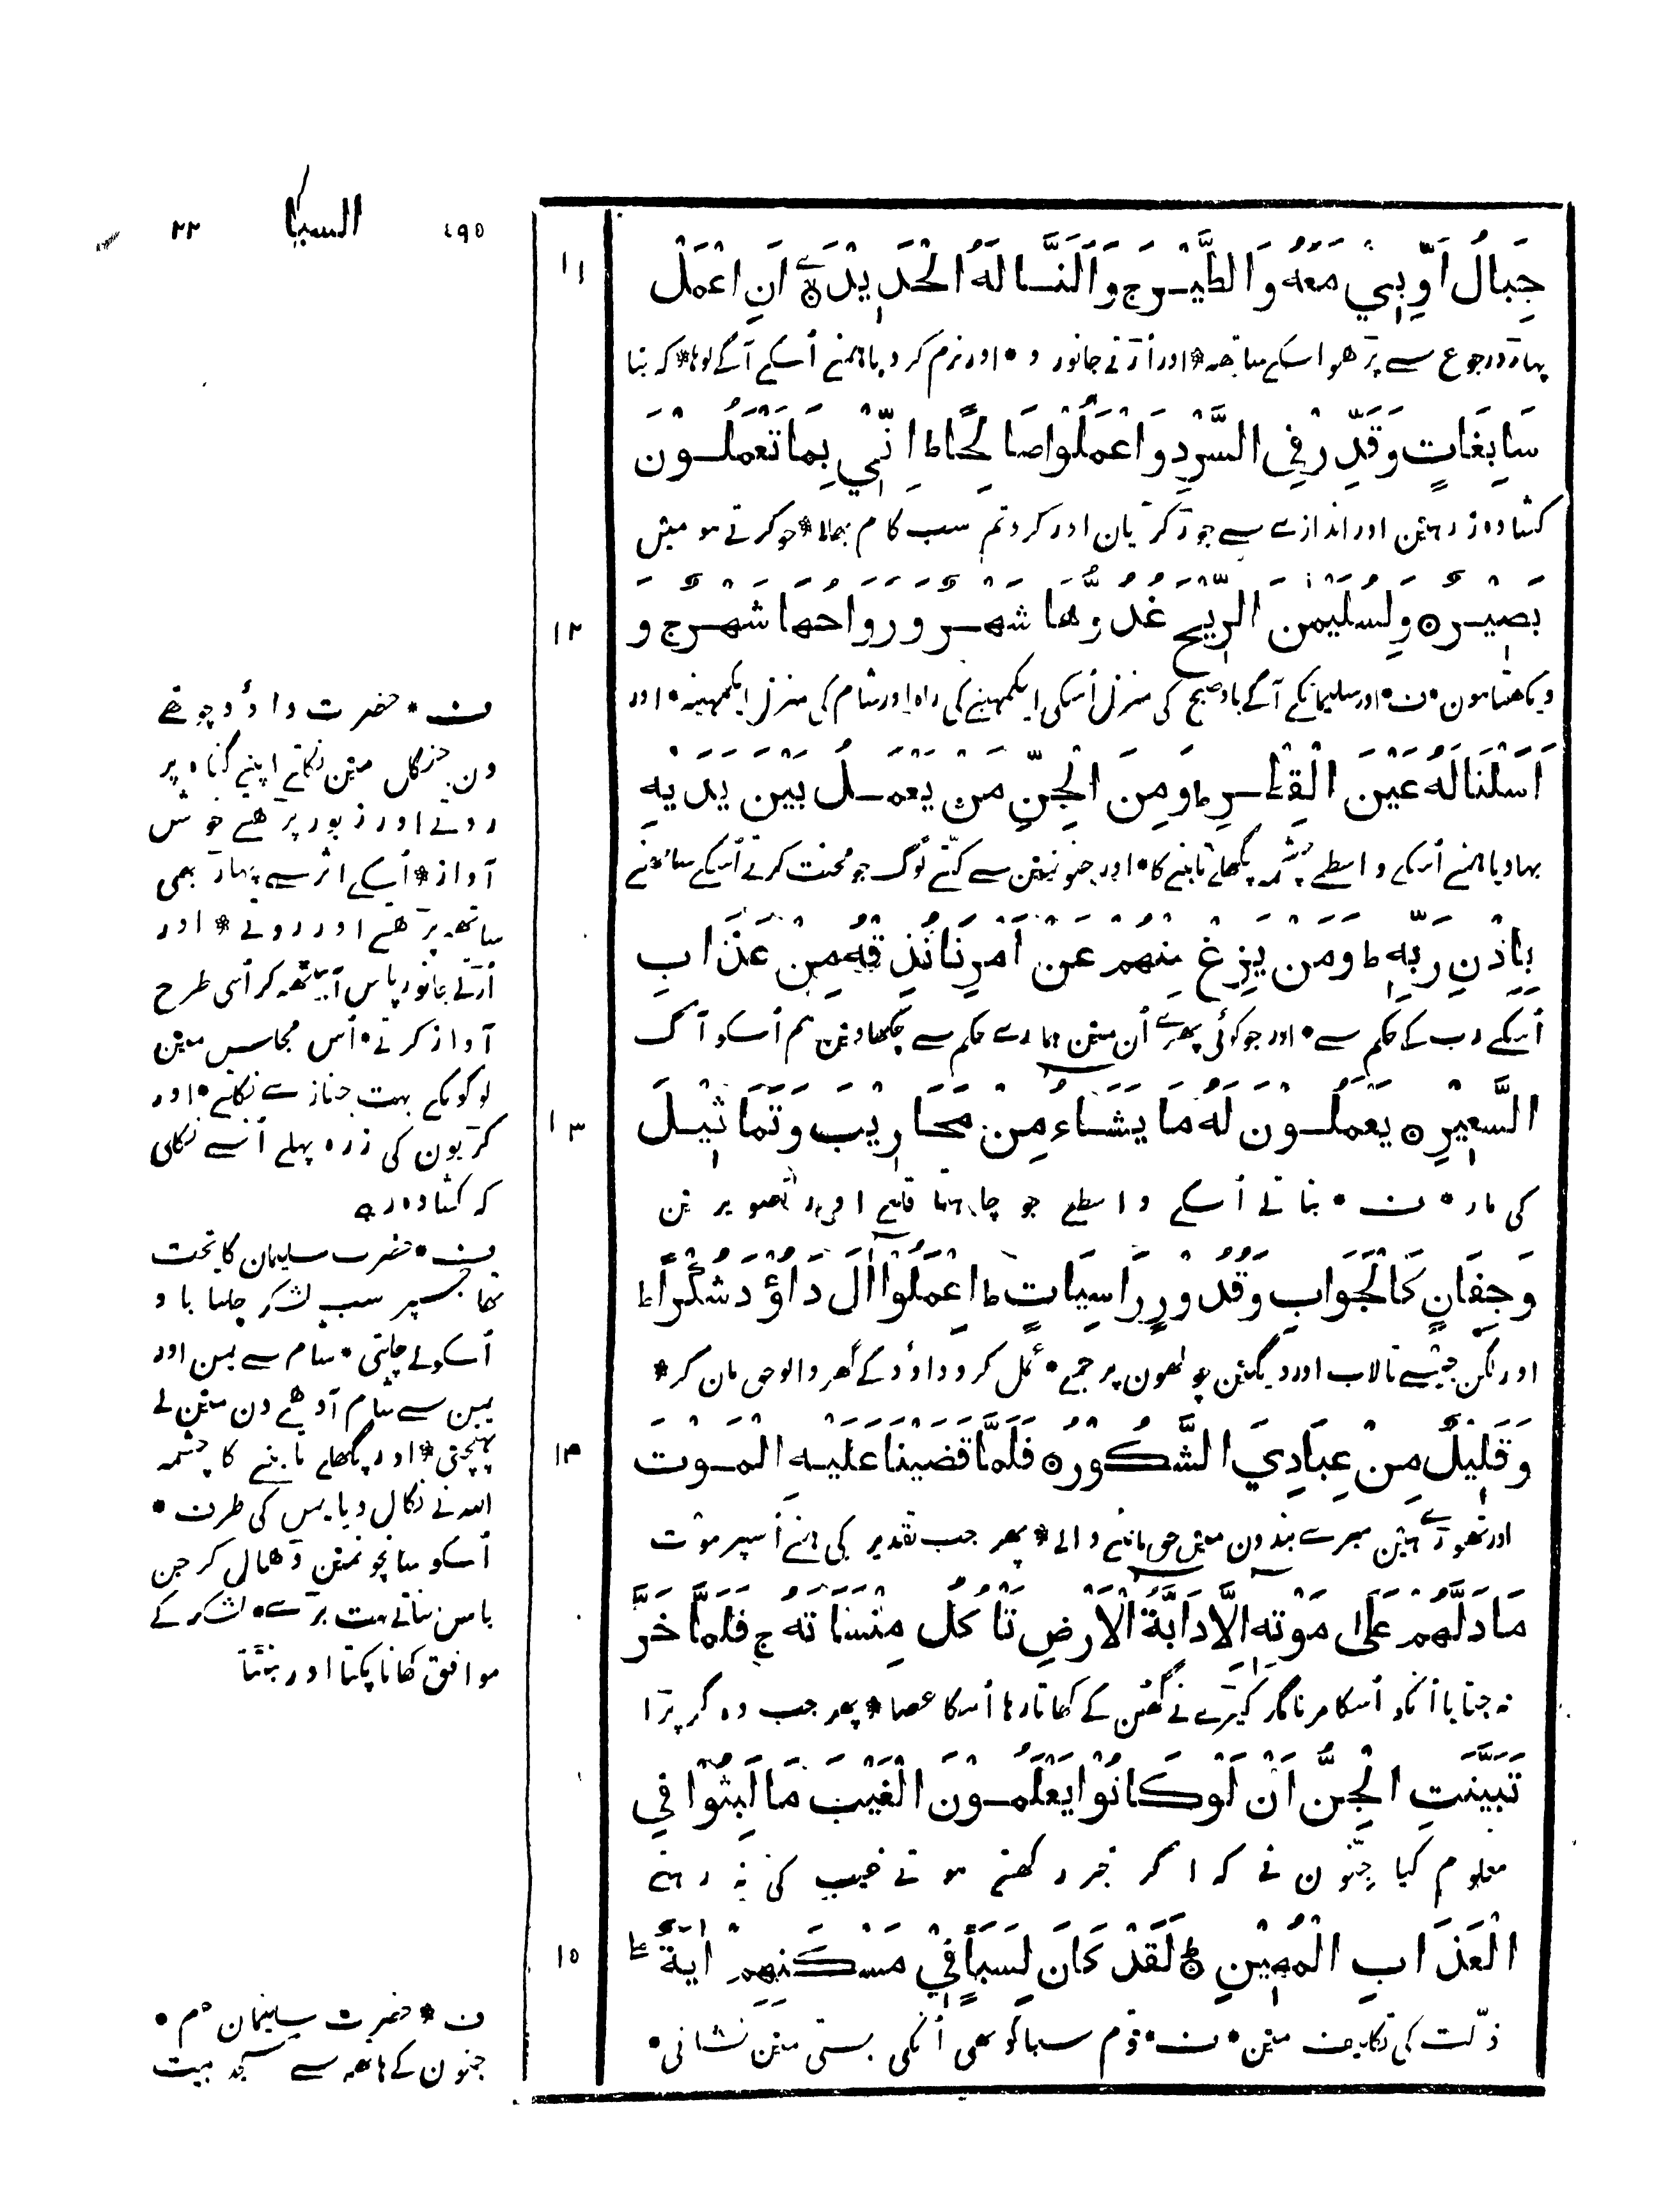 ٤٩٥ السبا ٢٢
١١
جِبَالُ اَوِّبِيْ مَعَهٗ وَ الطَّيْرَ ج وَ اَلَنَّا لَهُ الْحَدِيْدَ ۙ اَنِ اعْمَلْ
پہاڑو رجوع سے پڑھو اسکے ساتھہ * اور اُڑتے جانور و • اور نرم کر دیا ہمنے اُسکے آگے لوہا * کہ بنا
سَابِغَاتٍ وَقَدِّرْ فِى السَّرْدِ وَ اعْمَلُوْا صَالِحًا ط اِنِّيْ بِمَا تَعْمَلُوْنَ
کشادہ زرہین اور اندازے سے جوڑ کڑیان اور کرو تم سب کام بھلا * جو کرتے ہو مین
١٢
بَصِيْرٌ ۝ وَلِسُلَيْمٰنَ الرِّيْحَ غُدُوُّهَا شَهْرٌ وَ رَوَاحُهَا شَهْرٌ ج وَ
دیکھتا ہون • ف • اور سلیمانکے آگے باد صبح کی منزل اُسکی ایکمہینے کی راہ اور شام کی منزل ایکمہینہ • اور
اَسَلْنَا لَهٗ عَيْنَ الْقِطْرِ ط وَ مِنَ الْجِنِّ مَنْ يَّعْمَلُ بَيْنَ يَدَيْهِ
بہا دیا ہمنے اُسکے واسطے چشمہ پگھلے تانبے کا • اور جنونمین سے کتنے لوگ جو محنت کرتے اُسکے سامھنے
بِاِذْنِ رَبِّهٖ ط وَمَنْ يَّزِغْ مِنْهُمْ عَنْ اَمْرِنَا نُذِقْهُ مِنْ عَذَابِ
اُسکے رب کے حکم سے • اور جو کوئی پھرے اُن مین ہمارے حکم سے چکھاوین ہم اُسکو آگ
١٣
السَّعِيْرِ ۝ يَعْمَلُوْنَ لَهٗ مَا يَشَاءُ مِنْ مَّحَارِيْبَ وَ تَمَاثِيْلَ
کی مار • ف • بناتے اُسکے واسطے جو چاہتا قلعے اور تصویرین
وَجِفَانٍ كَالْجَوَابِ وَ قُدُوْرٍ رَّاسِيَاتٍ ط اِعْمَلُوْا اٰلَ دَاؤُدَ شُكْرًا ط
اور لگن جیسے تالاب اور دیگین چولھون پر جمے • عمل کرو داؤد کے گھر والو حق مان کر *
١٤
وَ قَلِيْلٌ مِنْ عِبَادِيَ الشَّكُوْرُ ۝ فَلَمَّا قَضَيْنَا عَلَيْهِ الْمَوْتَ
اور تھوڑے ہین میرے بندون مین حق ماننے والے * پھر جب تقدیر کی ہمنے اُسپر موت
مَا دَلَّهُمْ عَلٰى مَوْتِهٖ اِلَّا دَابَّةُ الْاَرْضِ تَاْكُلُ مِنْسَاَتَهٗ ج فَلَمَّا خَرَّ
نہ جتایا اُنکو اُسکا مرنا مگر کیڑے نے گھُن کے کھاتا رہا اُسکا عصا * پھر جب وہ گر پڑا
تَبَيَّنَتِ الْجِنُّ اَنْ لَّوْ كَانُوْا يَعْلَمُوْنَ الْغَيْبَ مَا لَبِثُوْا فِى
معلوم کیا جنّون نے کہ اگر خبر رکھتے ہوتے غیب کی نہ رہتے
١٥
الْعَذَابِ الْمُهِيْنِ ۝ لَقَدْ كَانَ لِسَبَاٍ فِيْ مَسْكَنِهِمْ اٰيَةٌ ج
ذلّت کی تکلیف مین • ف • قوم سبا کو تھی اُنکی بستی مین نشانی •
ف • حضرت داؤد چوتھے
دن جنگل مین نکلتے اپنے گناہ پر
روتے اور زبور پڑھتے خوش
آواز * اُسکے اثر سے پہاڑ بھی
ساتھہ پڑھتے اور روتے * اور
اُڑتے جانور پاس آ بیٹھہ کر اُسی طرح
آواز کرتے • اُس مجلس مین
لوگونکے بہت جنازے نکلتے • اور
کڑیون کی زرہ پہلے اُنسے نکلی
کہ کشادہ رہے
ف • حضرت سلیمان کا تخت
تھا جسپر سب لشکر چلتا باو
اُسکو لے چلتی • شام سے یمن اور
یمن سے شام آدھے دن مین لے
پہنچتی * اور پگھلے تانبے کا چشمہ
اللہ نے نکال دیا یمن کی طرف •
اُسکو سانچونمین ڈھال کر جن
باسن بناتے بہت بڑے • لشکر کے
موافق کھانا پکتا اور بنٹتا
ف * حضرت سلیمان ؑم •
جنون کے ہاتھہ سے مسجد بیت